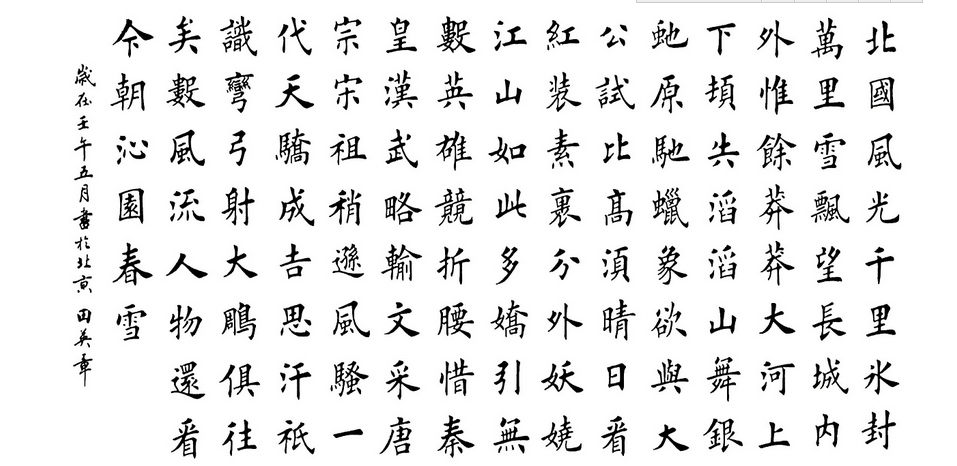 北國風光千里氷封
萬里雪飄望長城内
外惟餘莽莽大河上
下頓失滔滔山舞銀
虵原馳蠟象欲與大
公試比髙湏晴日看
紅装素裹分外妖嬈
江山如此多嬌引無
數英雄競折腰惜秦
皇漢武略輸文采唐
宗宋祖稍遜風騷一
代天驕成吉思汗祇
識彎弓射大鵰俱往
矣數風流人物還看
今朝沁園春雪
歲在壬午五月書於北京 田英章